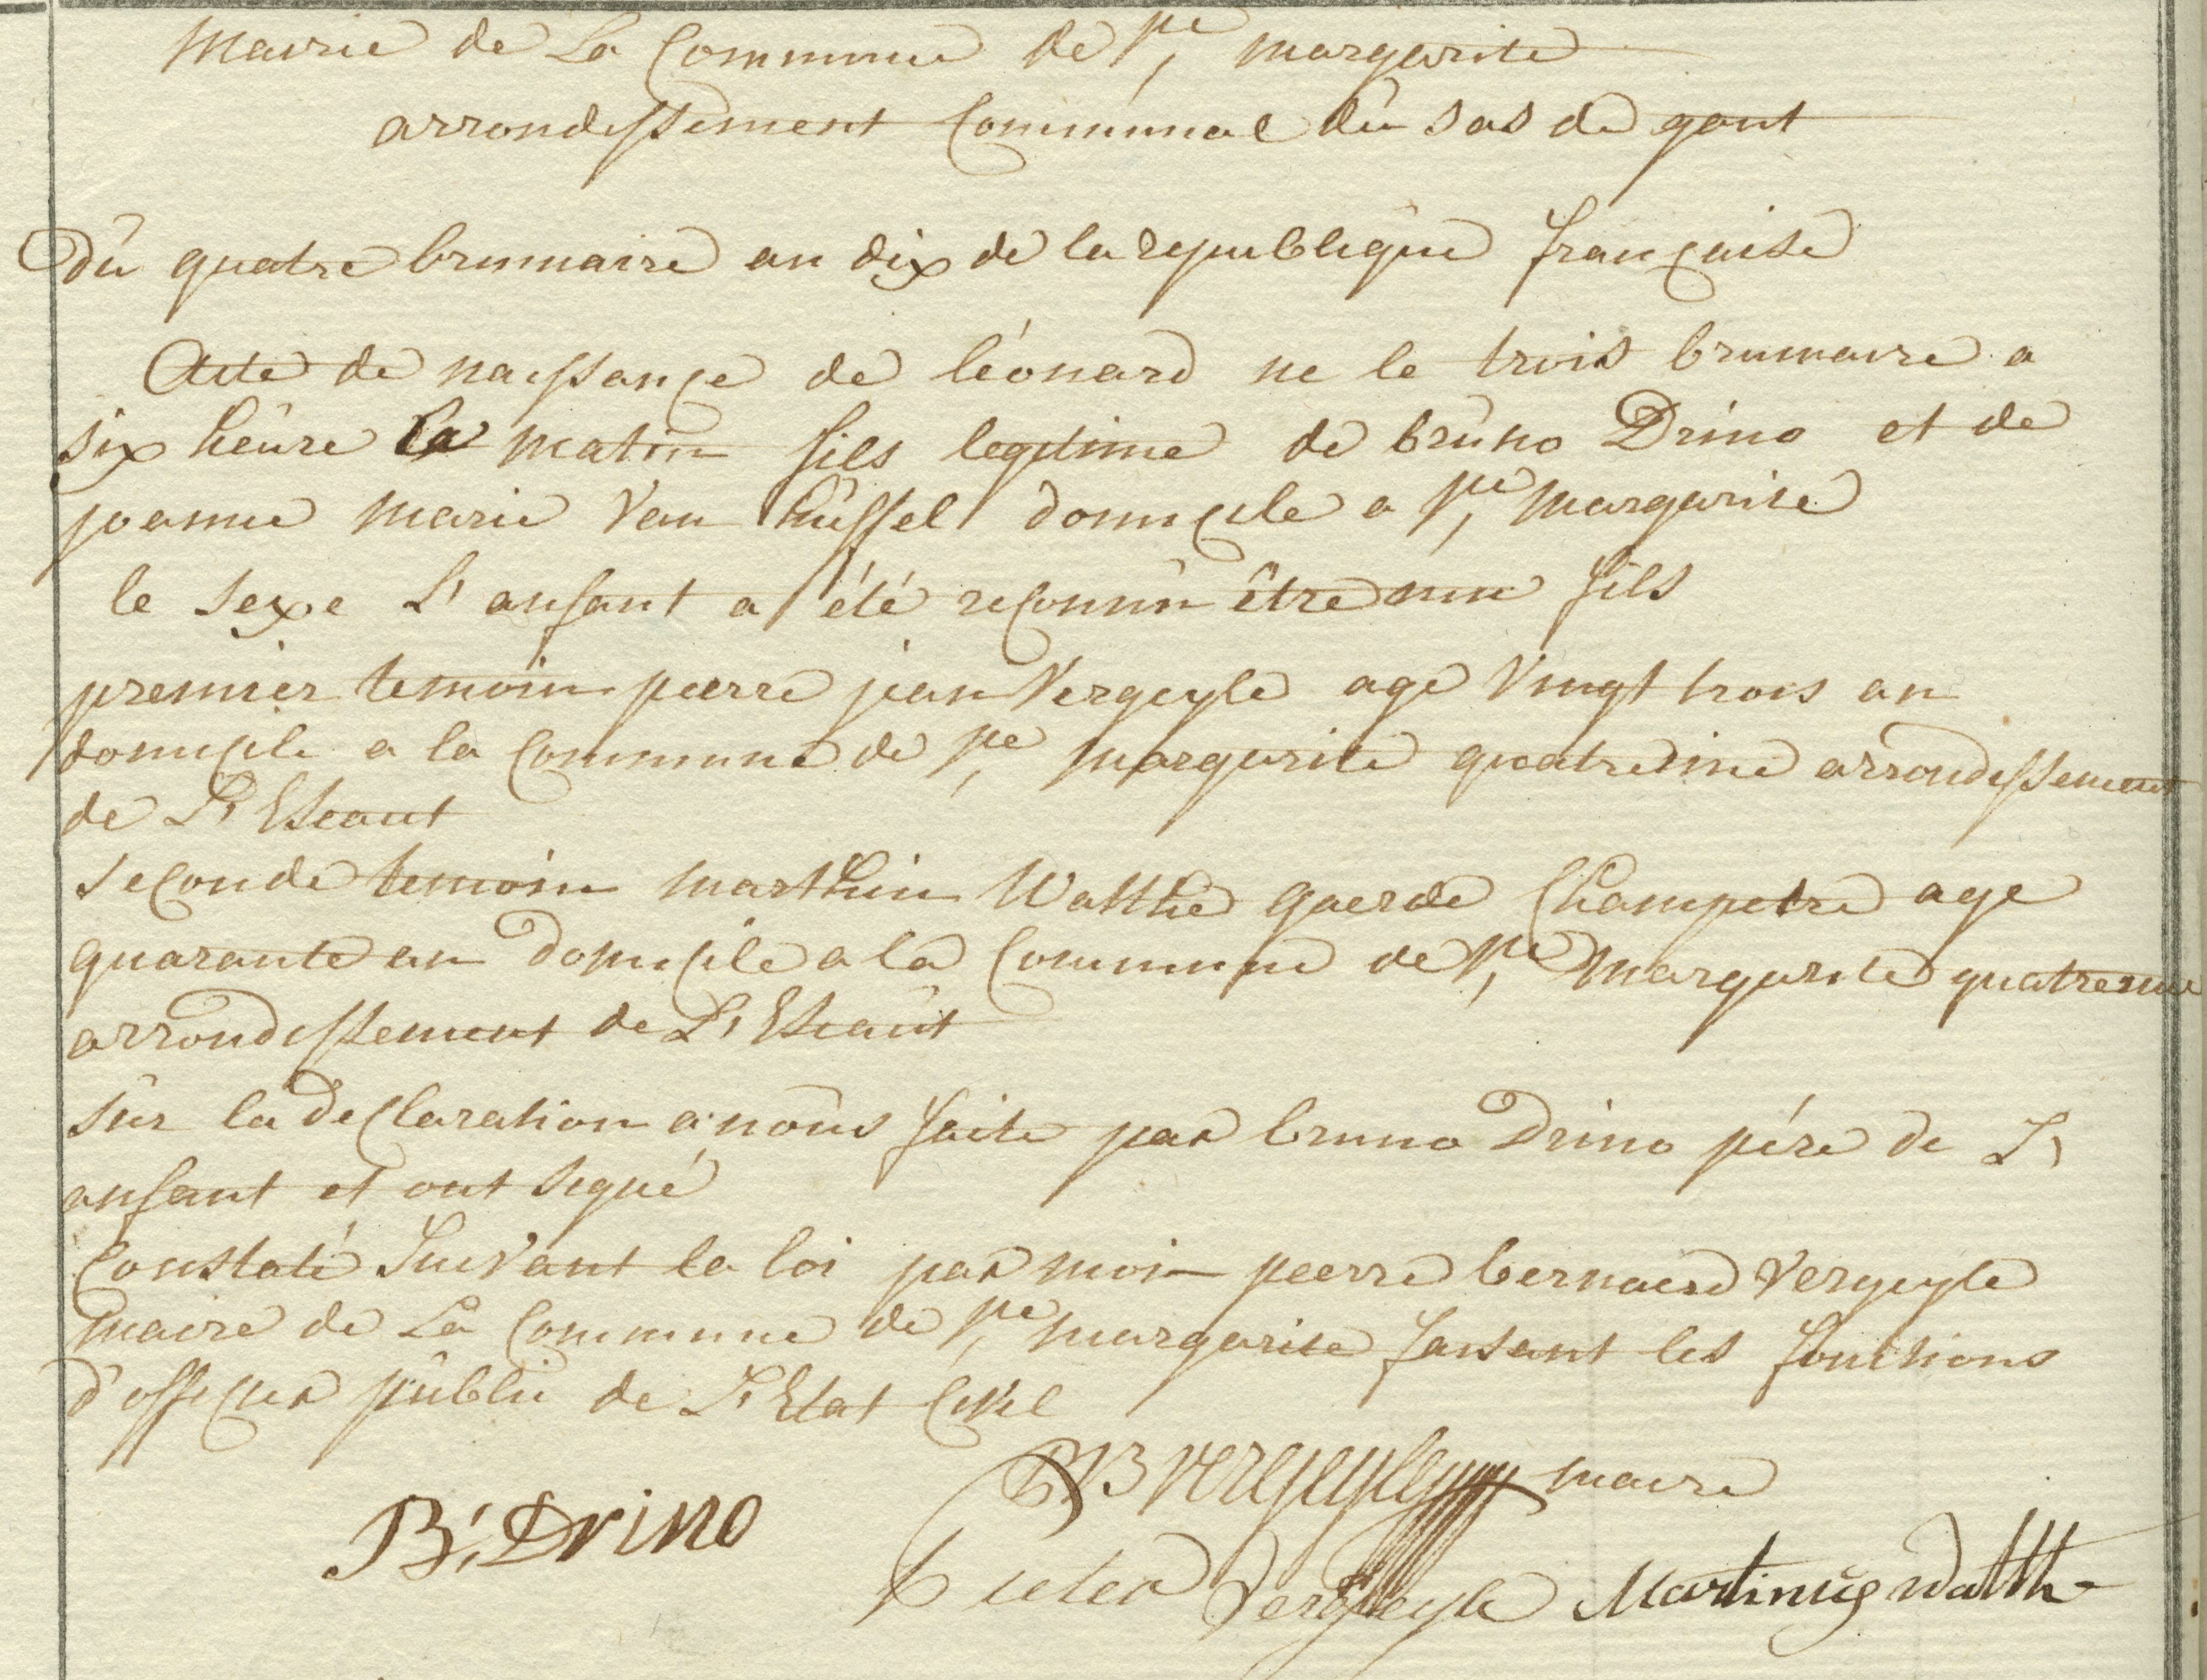 Mairie de La Commune de Ste margarite
arrondissement Communal du sas de gant
Dû quatre brumaire an dix de la republique française
Acte de naissançe de léonard ne le trois brumaire a
six heûre le matin fils legitime de brûno Drino et de
joanne marie Van hûssel domicile a Ste margarite
le sexe L'anfant a été reconnû être une fils
premier temoin pierre jean Vergeyle age Vingt trois an
domicile a la Commune de Ste margarite quatreime arrondissement
de L'Escaut
seconde temoin marthin Watthé gaerde Champetre age
quarante an domicile a la Commune de Ste margarite quatreime
arrondissement de L'Escaût
sûr la declaration a noûs faite par bruno Drino pére de L'
anfant et ont signé
Constaté Suivant la loi par moin pierre bernaerd Vergeyle
maire de La Commune de Ste margarite faisant les fonctions
d'officier pûblic de L'Etat Civil
PB vergeyle maire
B: Drino
Pieter Vergheyle Martinus Watthe